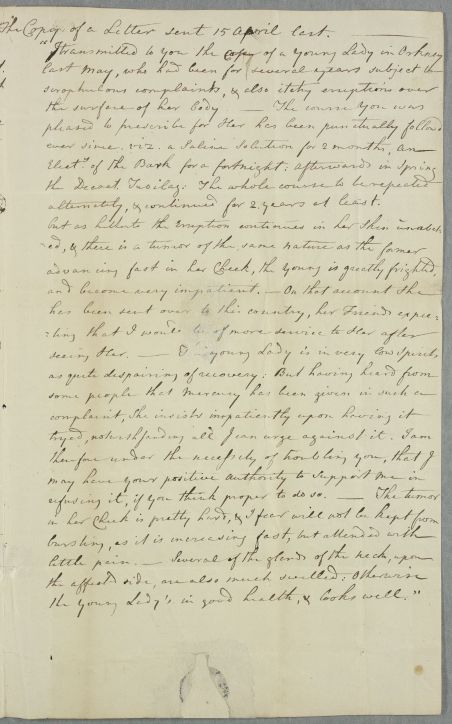 The Copy of a Letter sent 15 April last.
"I transmitted to you the Case of a young Lady in Orkney
last May, who had been for several years subject to
scrophulous complaints, & also itchy eruptions over
the surface of her Body — The course you was
pleased to prescribe for Her has been punctually follow'd
ever since. viz. a Saline Solution for 2 months, an
Elect.y of the Bark for a fortnight: afterwards in Spring
the Decoct. : The whole course to be repeated
alternately, & continued for 2 years at least.
But as hitherto the Eruption continues in her Skin unabat-
-ed, & there is a tumor of the same nature as the former
advancing fast in her Cheek, the young is greatly frighted,
and become very impatient. — On that account She
has been sent over to this country, her Friends expec-
:ting that I would be of more service to Her after
seeing Her. — The young Lady is in very low Spirits
as quite despairing of recovery: But having heard from
some people that Mercury has been given in such a
complaint, She insists impatiently upon having it
tryed, notwithstanding all I can urge against it. I am
therefore under the necessity of troubling you, that I
may have your positive authority to Support me in
refusing it, if you think proper to do so. — The tumor
in her Cheek is pretty hard, & I fear will not be kept from
bursting, as it is increasing fast, but attended with
little pain. — Several of the glands of the neck, upon
the affected side, are also much swelled: Otherwise
the young Lady's in good health, & looks well."